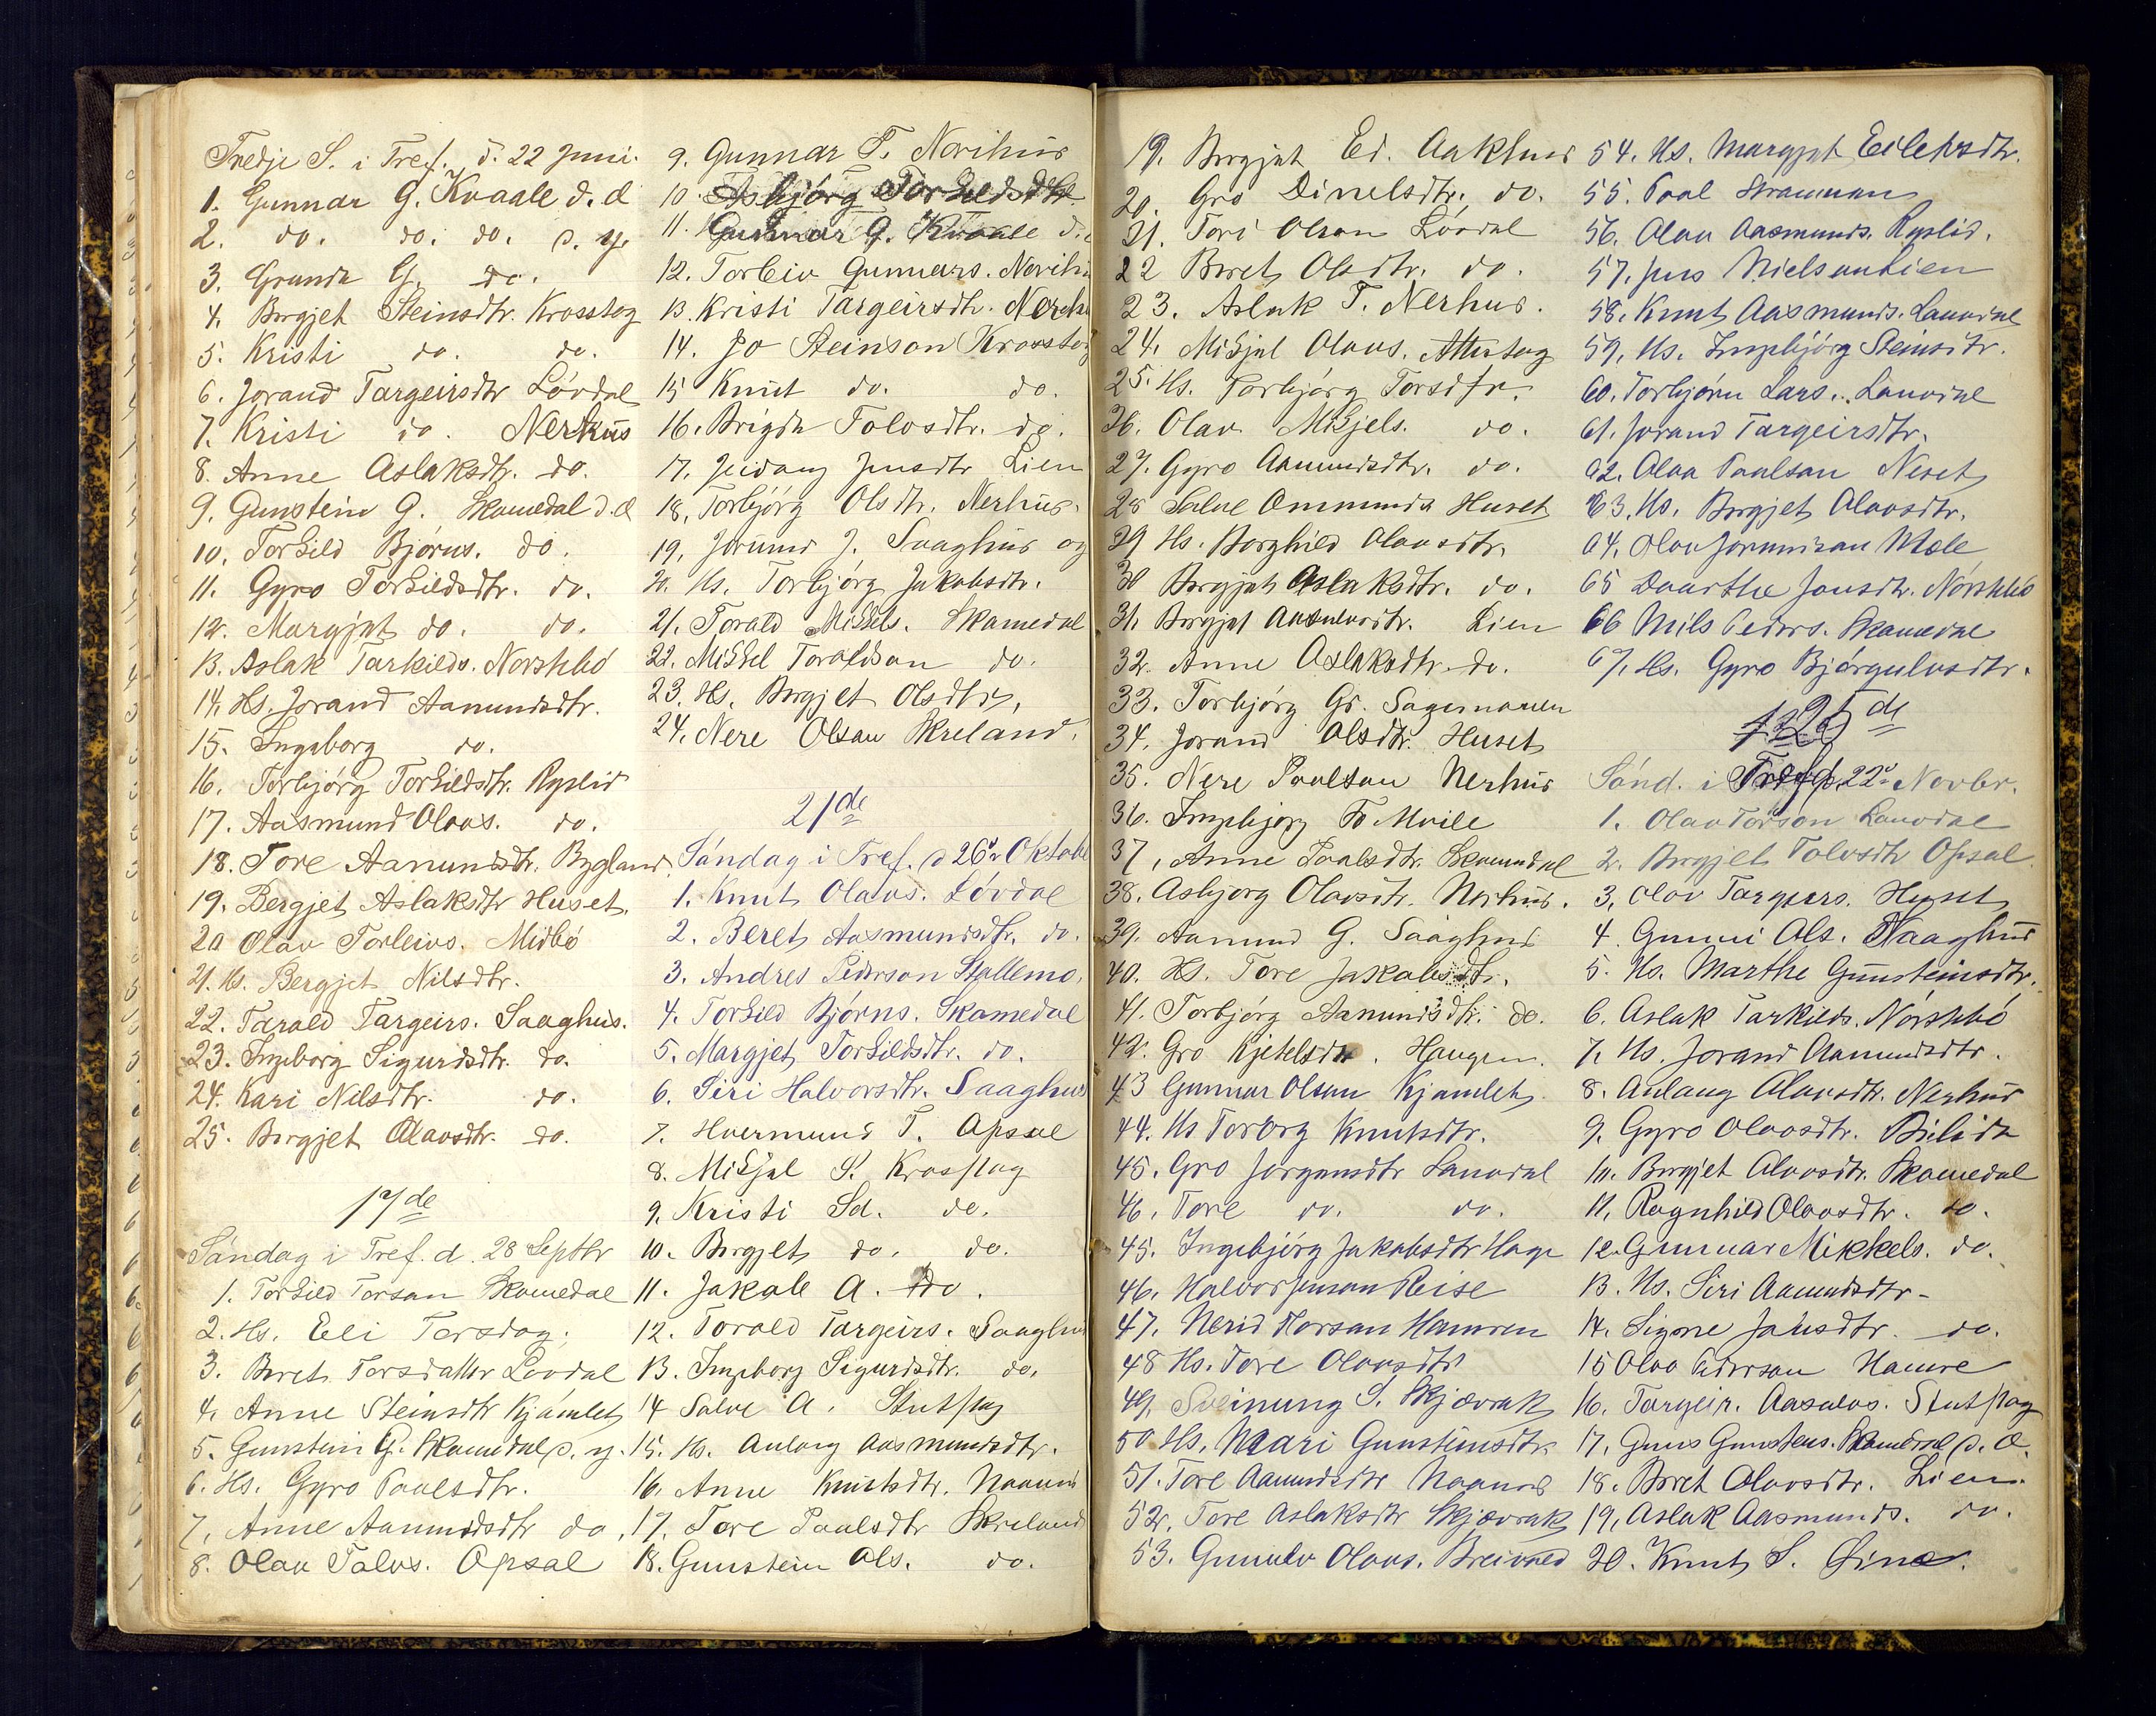 Tredje S. i Tref. d. 22 Juni.
1. Gunnar G. Kvaale d. æ
2. do. do. do. d. y.
3. Gunda G. do.
4. Borgjet Steinsdtr. Krosstog
5. Kristi do. do.
6. Jorand Targeirsdtr Lövdal
7. Kristi do. Nerhus
8. Anne Aslaksdtr. do.
9. Gunstein G. Skomedal d. æ
10. Torkild Björns. do.
11. Gyro Torkildsdtr. do.
12. Margjet do. do.
13. Aslak Tarkilds. Norstebö
14. Hs. Jorand Aanundsdtr.
15. Ingeborg do.
16. Torbjörg Torkildsdtr. Ryslid
17. Aasmund Olavs. do.
18. Tore Aanundsdtr. Bygland
19. Bergjet Aslaksdtr Huset.
20 Olav Torleivs. Midbö
21. Hs. Bergjet Nilsdtr.
22. Tarald Targeirs. Saaghus.
23. Ingeborg Sigurdsdtr. do.
24. Kari Nilsdtr. do.
25. Borgjet Olavsdtr. do.
17de
Söndag i Tref. d. 28 Septbr
1. Torkild Torsan Skomedal
2. Hs. Eli Torsdog.
3. Beret Torsdatter Lövdal
4. Anne Steinsdtr Kjämlet
5. Gunstein G. Skomedal d. y.
6. Hs. Gyro Paalsdtr.
7. Anne Aanundsdtr do.
8. Olav Talvs. Opsal
9. Gunnar T. Norihus
10. Asbjörg Torkildsdtr.
11. Gunnar G. Kvaale d.
12. Torleiv Gunnars. Norihu
13. Kristi Targeirsdtr. Nerhu
14. Jo Steinson Krosstog
15 Knut do. do.
16. Brigda Folvsdtr. do.
17. Jeidang Jensdtr Lien
18. Torbjörg Olsdtr. Nerhus.
19. Jörund J. Saaghus og
20. Hs. Torbjörg Jakobsdtr.
21. Torald Mikkels. Skomedal
22. Mikkel Toraldson do.
23. Hs. Borgjet Olsdtr.
24. Nere Olsen Skreland.
21de
Söndag i Tref. d 26 Oktobe
1. Knut Olavs. Lövdal
2. Beret Aasmundsdtr. do.
3. Andres Pederson Stallemo.
4. Torkild Björns. Skomedal
5. Margjet Torkildsdtr. do.
6. Siri Halvorsdtr. Saaghus
7. Hvermund T. Opsal
8. Mikjal S. Krosstog
9. Kristi Sd. do.
10. Borgjet do. do.
11. Jakob A. do.
12. Torald Targeirs. Saaghus
13. Ingeborg Sigurdsdtr. do.
14 Salve A. Stutstog
15. Hs. Anlang Aasmundsdtr.
16. Anne Knutsdtr. Naanes
17. Tore Paalsdtr Skreland
18. Gunstein Ols. do.
19. Borgjet Ed. Aakhus
20. Gro Dinelsdtr. do.
21. Tori Olson Lövdal
22 Beret Olsdtr. do.
23. Aslak T. Nerhus.
24. Mikjel Olavs.
25. Hs. Torbjörg Torsdtr.
26. Olav Mikjels. do.
27. Gyro Aanundsdtr. do.
28 Salve Ommunds Huset
29 Hs. Borghild Olavsdtr.
30 Borgjet Aslaksdtr. do.
31. Borgjet Aasulvsdtr. Lien
32. Anne Aslaksdtr. do.
33. Torbjörg Gr. Sagemoen
34. Jorand Olsdtr. Huset
35. Nere Paalson Nerhus
36. Ingebjorg To Moile
37. Anne Paalsdtr. Skomedal
38. Asbjorg Olavsdtr. Nerhus.
39. Aanund G. Saaghus
40. Hs. Tore Jakobsdtr.
41. Torbjörg Aanundsdtr. do.
42. Gro Kjetelsdtr. Haugen.
43 Gunnar Olson Kjamlet
44. Hs Torborg Knutsdtr.
45. Gro Jörgensdtr Lauvdal
46. Tore do. do.
45. Ingebjörg Jakobsdtr Hage
46. Halvor Jenson Reise
47. Nerid Horsan Hamren
48 Hs. Tore Olavsdtr
49. Sveinung S. Skjævrak
50 Hs. Mari Gunsteinsdtr.
51. Tore Aanundsdtr Naanes
52. Tore Aslaksdtr Skjævrak
53. Gunulv Olavs. Breivned
54. Hs. Margjet Eilefsdtr.
55. Paal Straumen
56. Olav Aasmunds. Ryslid.
57. Jens Nielson Lien
58. Knut Aasmunds. Lauvdal
59. Hs. Ingebjörg Steinsdtr.
60. Torbjörn Lars. Lauvdal
61. Jorand Targeirsdtr.
62. Olav Paalson Neset
63. Hs. Borgjet Olavsdtr.
64. Olav Jörundson Mæle
65 Daarthe Jonsdtr. Nörstebö
66 Nils Peders. Skomedal
67. Hs. Gyro Björgulvsdtr.
25de
Sönd. i Tref. 22 Novbr.
1. Olav Torson Lauvdal
2. Borgjet Tolvsdtr Opsal.
3. Olav Targeirs. Huset
4. Gunni Ols. Naaghus
5. Hs. Marthe Gunsteinsdtr.
6. Aslak Tarkilds. Nörstebö
7. Hs. Jorand Aanundsdtr.
8. Anlaug Olavsdtr. Nerhus
9. Gyro Olavsdtr.
10. Borgjet Olavsdtr. Skomedal
11. Ragnhild Olavsdtr. do.
12. Gunnar Mikkels. do.
13. Hs. Siri Aanundsdtr.
14. Signe Jansdtr. do.
15 Olav Pederson Hamre
16. Targeir. Aasulvs. Stutstog
17. Guns Gunsteins. Skomedal d. æ.
18. Beret Olavsdtr. Lien.
19. Aslak Aasmunds. do.
20. Knut S. Öine.